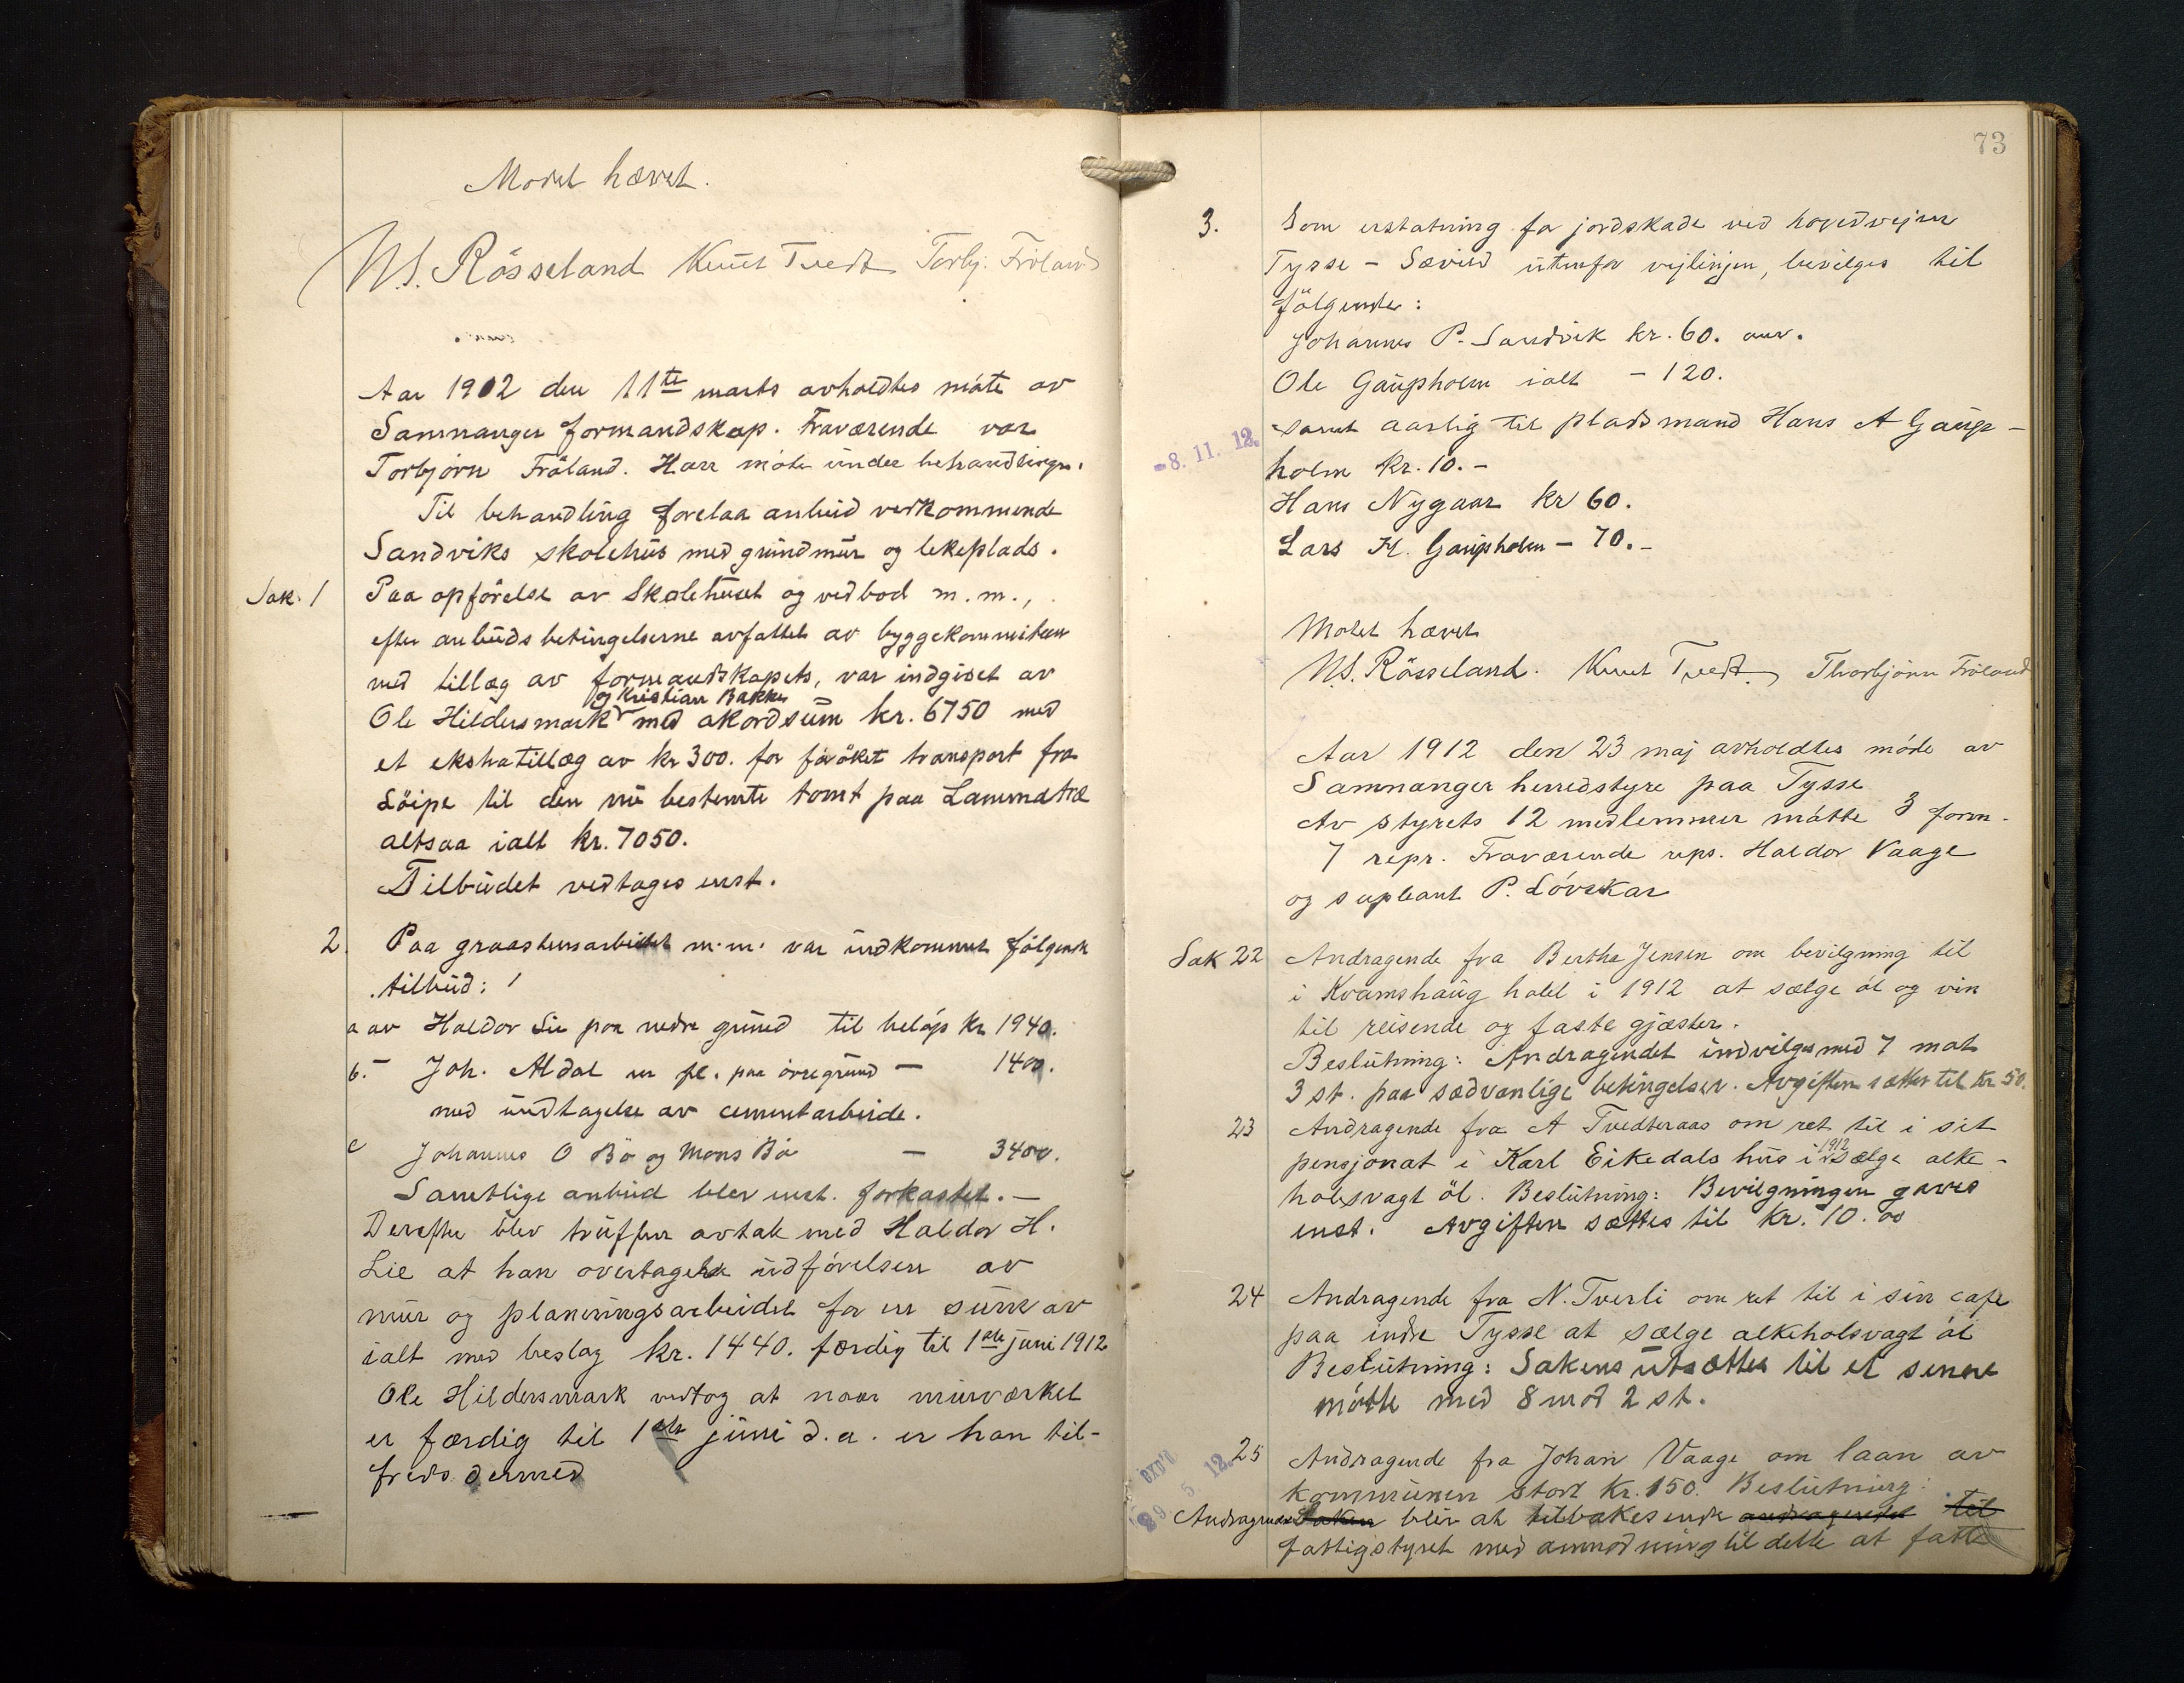 Motet hævet.
N.S. Rösseland Knut Tvedt Torbj. Fröland
Aar 1902 den 11te marts avholdtes möte av
Samnanger formandskap. Fraværende var
Torbjörn Fröland. Han möte under behandlingen.
Til behandling forelaa anbud vedkommende
Sandviks skolehus med grundmur og lekeplads.
Sak 1 Paa opförelse av Skolehuset og vedbod m.m.,
efter anbudsbetingelserne avfattet av byggekommiteen
med tillæg av formandskapets, var indgivet av
og Kristian Bakke
Ole Hildersmark med akordsum kr. 6750 med
et ekstratillæg av kr 300. for forøket transport fra
Löipe til den nu bestemte tomt paa
altsaa ialt kr. 7050.
Tilbudet vedtages enst.
2. Paa graastensarbeidet m.m. var indkommet følgende
tilbud:
a av Haldor Lie paa nedre grund til beløp Kr 1940.
b. - Joh. Aldal m fl. paa övregrund - 1400.
med undtagelse av cementarbeide.
c Johannes O Bö og Mons Bö - 3400.
Samtlige anbud blev enst. forkastet. -
Derefter blev truffen avtale med Haldor H.
Lie at han overtager utförelsen av
mur og planeringsarbeidet for en sum av
ialt med beslag kr. 1440. færdig til 1ste juni 1912
Ole Hildersmark vedtog at naar murværket
er færdig til 1ste juni d.a. er han til-
freds dermed
73
3. Som erstatning for jordskade ved hovedveien
Tysse - Sævild utenfor veilinjen, bevilges til
fölgende:
Johannes P. Sandvik kr. 60.
Ole Gaupholm ialt - 120.
samt aarlig til pladsmand Hans A Gaup-
- 8. 11. 12.
holm kr. 10. -
Hans Nygaar kr 60.
Lars H. Gaupholm - 70. -
Motet hævet
N.S. Rösseland. Knut Tvedt Thorbjörn Fröland
Aar 1912 den 23 maj avholdtes möde av
Samnanger herredstyre paa Tysse
Av styrets 12 medlemmer mötte 3 form.
7 repr. Fraværende reps. Haldor Vaage
og supleant P. Lövskar
Sak 22 Andragende fra Bertha Jensen om bevilgning til
i Kvamshaug hotel i 1912 at sælge öl og vin
til reisende og faste gjæster.
Beslutning: Andragendet indvilges med 7 mot
3 st. paa sædvanlige betingelser. Avgiften sættes til kr 50.
23 Andragende fra A Tvedteraas om ret til i sit
pensjonat i Karl Eikedals hus i 1912 sælge alke-
holsvagt öl. Beslutning: Bevilgningen gaves
enst. Avgiften sættes til kr. 10.00
24 Andragende fra N. Tverli om ret til i sin cafe
paa indre Tysse at sælge alkeholsvagt öl
Beslutning: Sakens utsættes til et senere
mötte med 8 mot 2 st.
25 Andragende fra Johan Vaage om laan av
EXP'D
29 5. 12.
kommunen stort Kr. 150. Beslutning:
Andragende Saken blir at tilbakesende andragendet til
fattigstyret med anmodning til dette at fatte